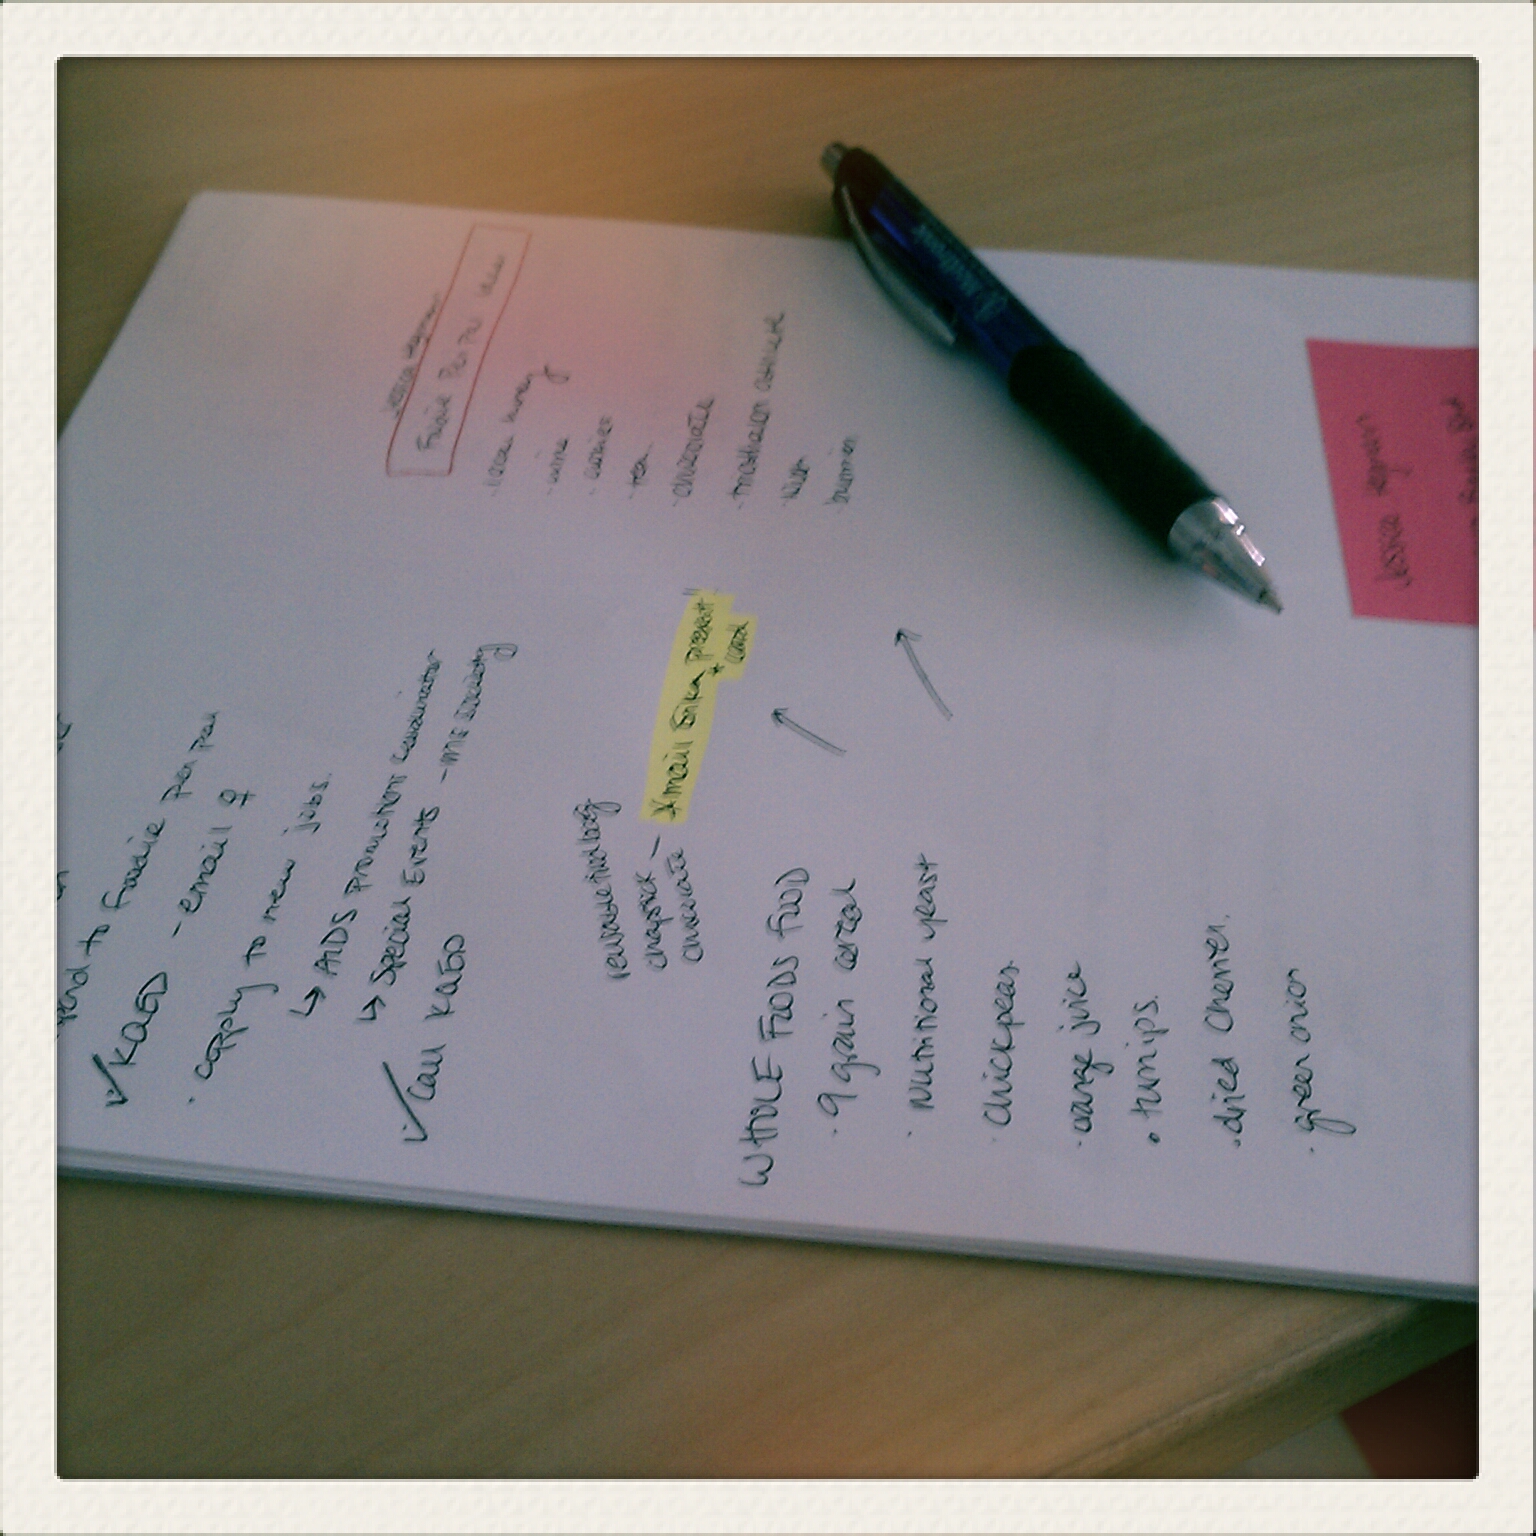 to foodie pen pal
✓ KQED - email
· apply to new jobs.
↳ AIDS promotions coordinator
↳ Special Events - MS society
✓ Call KQED
reusable food bag
chapstick -
chocolate
*mail Erika present"
+ card
WHOLE FOODS FOOD
· 9 grain cereal
· Nutritional yeast
· Chickpeas
· orange juice
· turnips.
· dried cherries.
· green onion
Foodie Pen Pal Ideas
· local honey
· wine
· cookies
· tea
· chocolate
Jessica